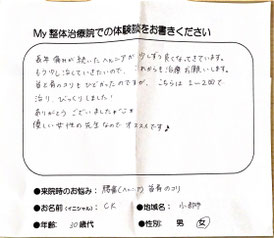 My 整体治療院での体験談をお書きください
長年 痛みが続いたヘルニアが 少しずつ良くなってきています。
もう少し治していきたいので、これからも治療お願いします。
首と肩のコリもひどかったのですが、こちらは 1〜2回で
治り、びっくりしました!
ありがとうございました
優しい女性の先生なので オススメです♪
●来院時のお悩み: 腰痛(ヘルニア) 首肩のコリ
●お名前(イニシャル): C.K ●地域名: 小
●年齢: 30歳代 ●性別: 男 女